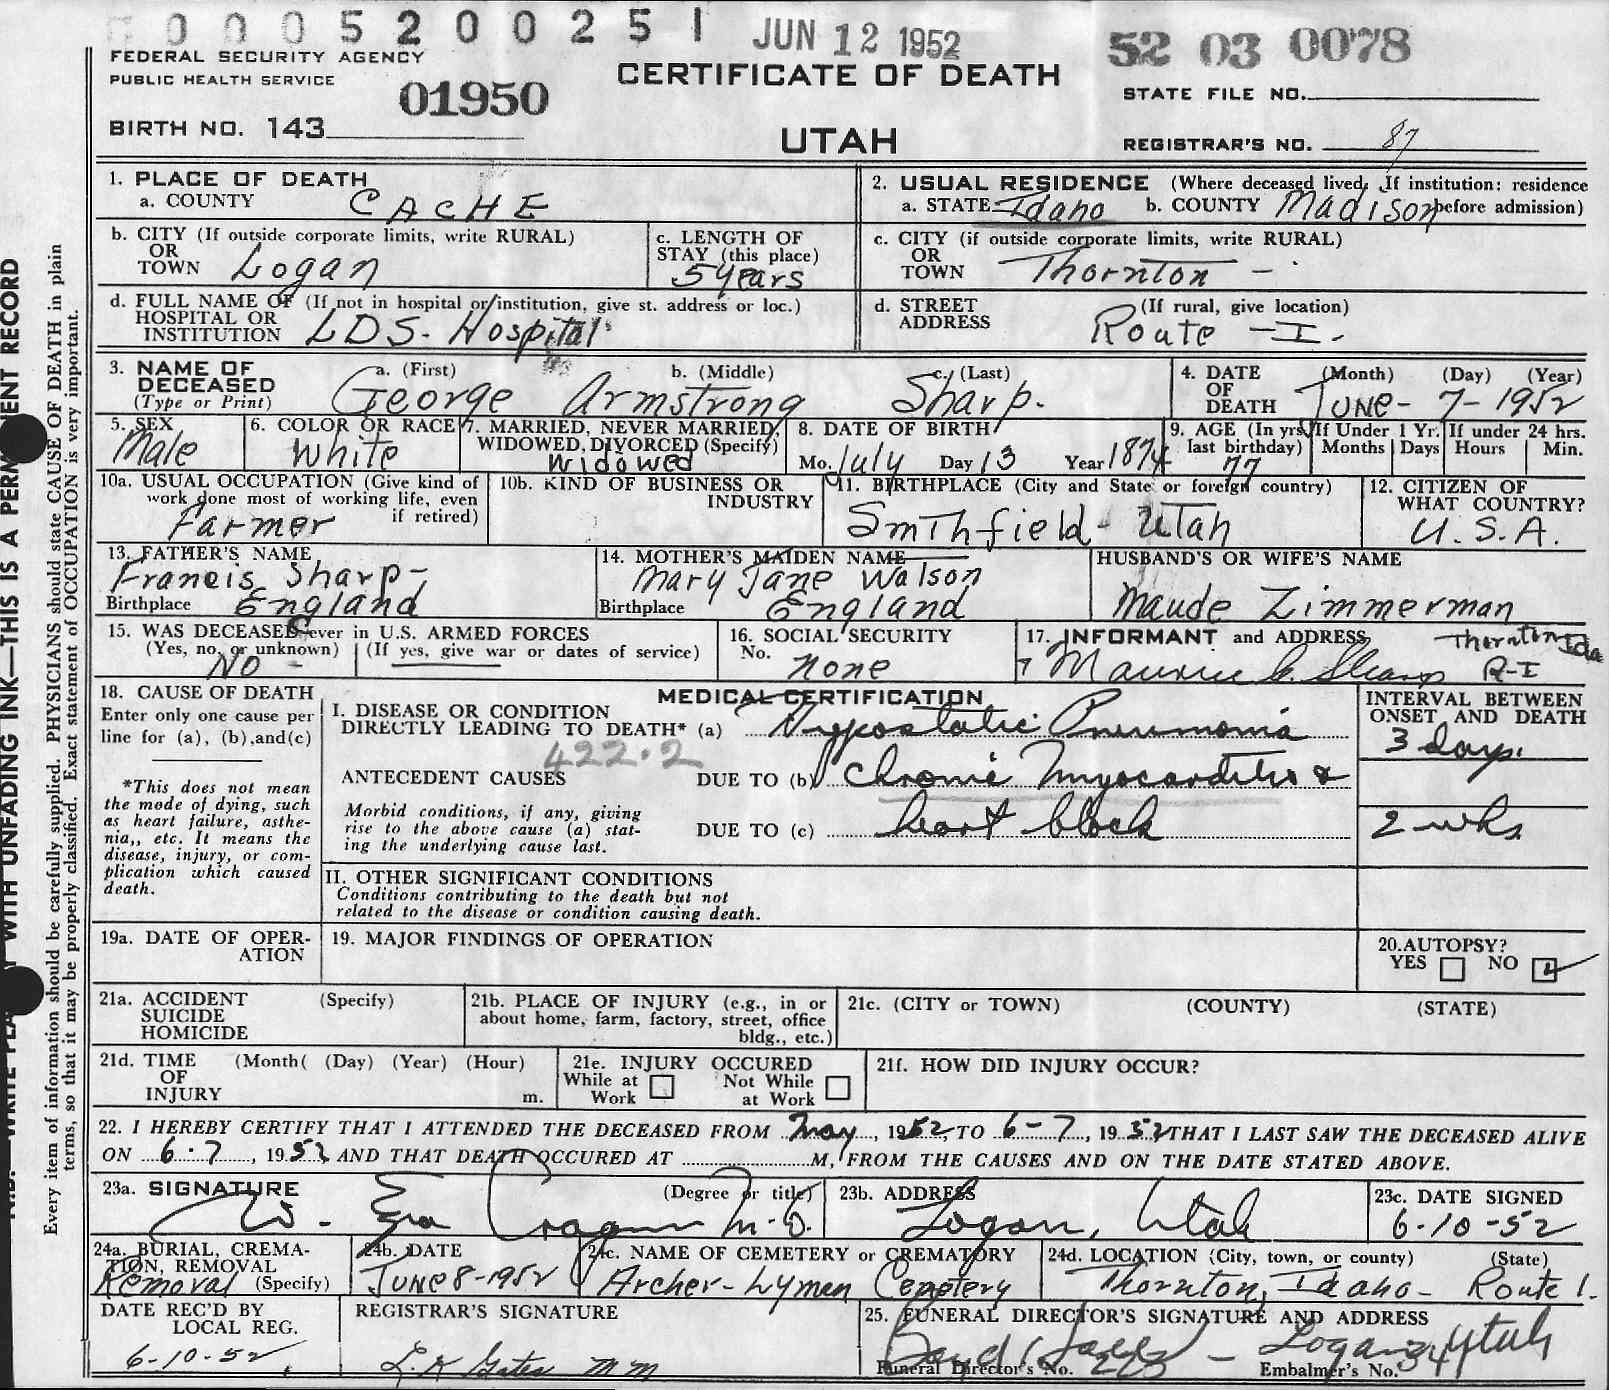 0 0 0 5 2 0 0 2 5 1 JUN 12 1952 52 03 0078
FEDERAL SECURITY AGENCY
PUBLIC HEALTH SERVICE
CERTIFICATE OF DEATH
STATE FILE NO.
01950
BIRTH NO. 143
UTAH
REGISTRAR'S NO. 87
1. PLACE OF DEATH
a. COUNTY CACHE
2. USUAL RESIDENCE (Where deceased lived. If institution: residence
a. STATE Idaho b. COUNTY Madison before admission)
b. CITY (If outside corporate limits, write RURAL)
OR
TOWN Logan
c. LENGTH OF
STAY (this place)
5 years
c. CITY (if outside corporate limits, write RURAL)
OR
TOWN Thornton -
d. FULL NAME OF (If not in hospital or institution, give st. address or loc.)
HOSPITAL OR
INSTITUTION LDS. Hospital
d. STREET (If rural, give location)
ADDRESS Route - I.
3. NAME OF
DECEASED
(Type or Print)
a. (First) b. (Middle) c. (Last)
George Armstrong Sharp.
4. DATE (Month) (Day) (Year)
OF
DEATH June - 7 - 1952
5. SEX
Male
6. COLOR OR RACE
White
7. MARRIED, NEVER MARRIED,
WIDOWED, DIVORCED (Specify)
Widowed
8. DATE OF BIRTH
Mo. July Day 13 Year 1874
9. AGE (In yrs. If Under 1 Yr. If under 24 hrs.
last birthday) Months Days Hours Min.
77
10a. USUAL OCCUPATION (Give kind of
work done most of working life, even
if retired)
Farmer
10b. KIND OF BUSINESS OR
INDUSTRY
11. BIRTHPLACE (City and State or foreign country)
Smithfield - Utah
12. CITIZEN OF
WHAT COUNTRY?
U.S.A.
13. FATHER'S NAME
Francis Sharp -
Birthplace England
14. MOTHER'S MAIDEN NAME
Mary Jane Walson
Birthplace England
HUSBAND'S OR WIFE'S NAME
Maude Zimmerman
15. WAS DECEASED ever in U.S. ARMED FORCES
(Yes, no, or unknown) (If yes, give war or dates of service)
No -
16. SOCIAL SECURITY
No. none
17. INFORMANT and ADDRESS Thornton Ida
Maurice G. Sharp R-I
18. CAUSE OF DEATH
Enter only one cause per
line for (a), (b), and (c)
*This does not mean
the mode of dying, such
as heart failure, asthe-
nia,, etc. It means the
disease, injury, or com-
plication which caused
death.
MEDICAL CERTIFICATION
I. DISEASE OR CONDITION
DIRECTLY LEADING TO DEATH* (a) Hypostatic Pneumonia
422.2
ANTECEDENT CAUSES DUE TO (b) Chronic Myocarditis &
Morbid conditions, if any, giving
rise to the above cause (a) stat-
ing the underlying cause last.
DUE TO (c) heart block
INTERVAL BETWEEN
ONSET AND DEATH
3 days.
2 wks
II. OTHER SIGNIFICANT CONDITIONS
Conditions contributing to the death but not
related to the disease or condition causing death.
19a. DATE OF OPER-
ATION
19. MAJOR FINDINGS OF OPERATION
20. AUTOPSY?
YES NO
21a. ACCIDENT (Specify)
SUICIDE
HOMICIDE
21b. PLACE OF INJURY (e.g., in or
about home, farm, factory, street, office
bldg., etc.)
21c. (CITY or TOWN) (COUNTY) (STATE)
21d. TIME (Month( (Day) (Year) (Hour)
OF
INJURY m.
21e. INJURY OCCURED
While at Not While
Work at Work
21f. HOW DID INJURY OCCUR?
22. I HEREBY CERTIFY THAT I ATTENDED THE DECEASED FROM May, 1952, TO 6-7, 1952 THAT I LAST SAW THE DECEASED ALIVE
ON 6.7, 1952 AND THAT DEATH OCCURED AT M, FROM THE CAUSES AND ON THE DATE STATED ABOVE.
23a. SIGNATURE (Degree or title)
W. Eza Cragun M.D.
23b. ADDRESS
Logan, Utah
23c. DATE SIGNED
6-10-52
24a. BURIAL, CREMA-
TION, REMOVAL
Removal (Specify)
24b. DATE
June 8-1952
24c. NAME OF CEMETERY or CREMATORY
Archer-Lyman Cemetery
24d. LOCATION (City, town, or county) (State)
Thornton, Idaho - Route 1.
DATE REC'D BY
LOCAL REG.
6-10-52
REGISTRAR'S SIGNATURE
25. FUNERAL DIRECTOR'S SIGNATURE AND ADDRESS
Logan, Utah
Funeral Director's No. Embalmer's No. 34
Every item of information should be carefully supplied. PHYSICIANS should state CAUSE OF DEATH in plain
terms, so that it may be properly classified. Exact statement of OCCUPATION is very important.
WITH UNFADING INK—THIS IS A PERM ENT RECORD